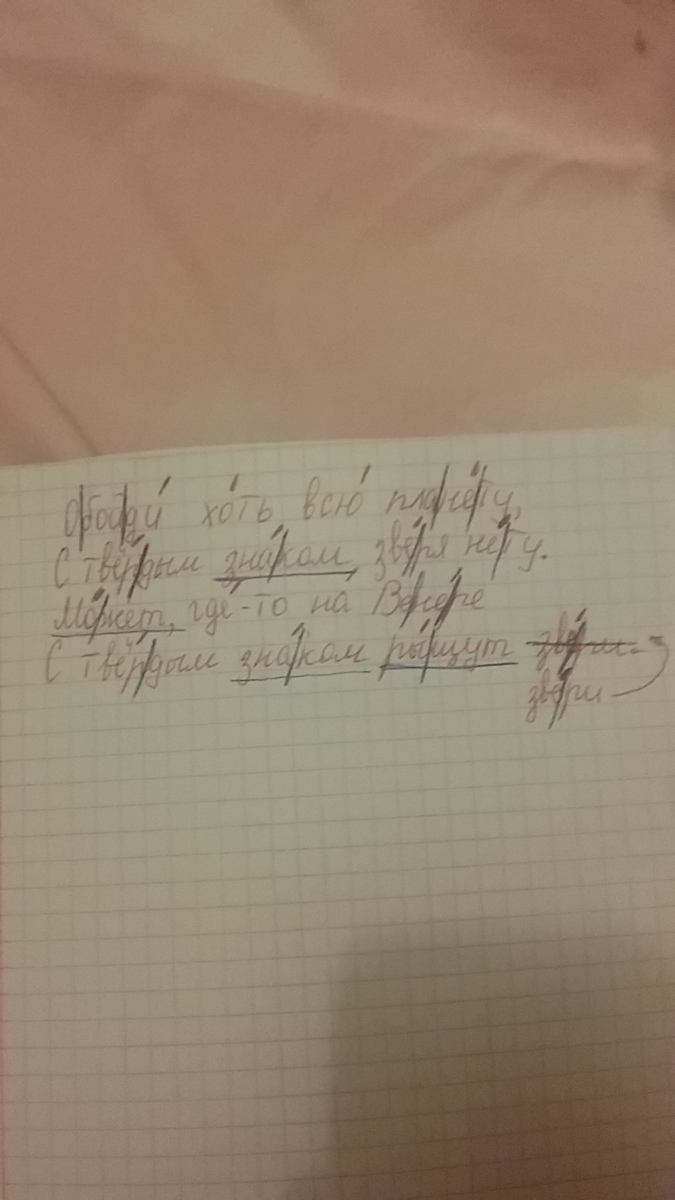 Обойди хоть всю планету,
С твёрдым знаком зверя нету.
Может, где-то на Венере
С твёрдым знаком рыщут звери.
звери